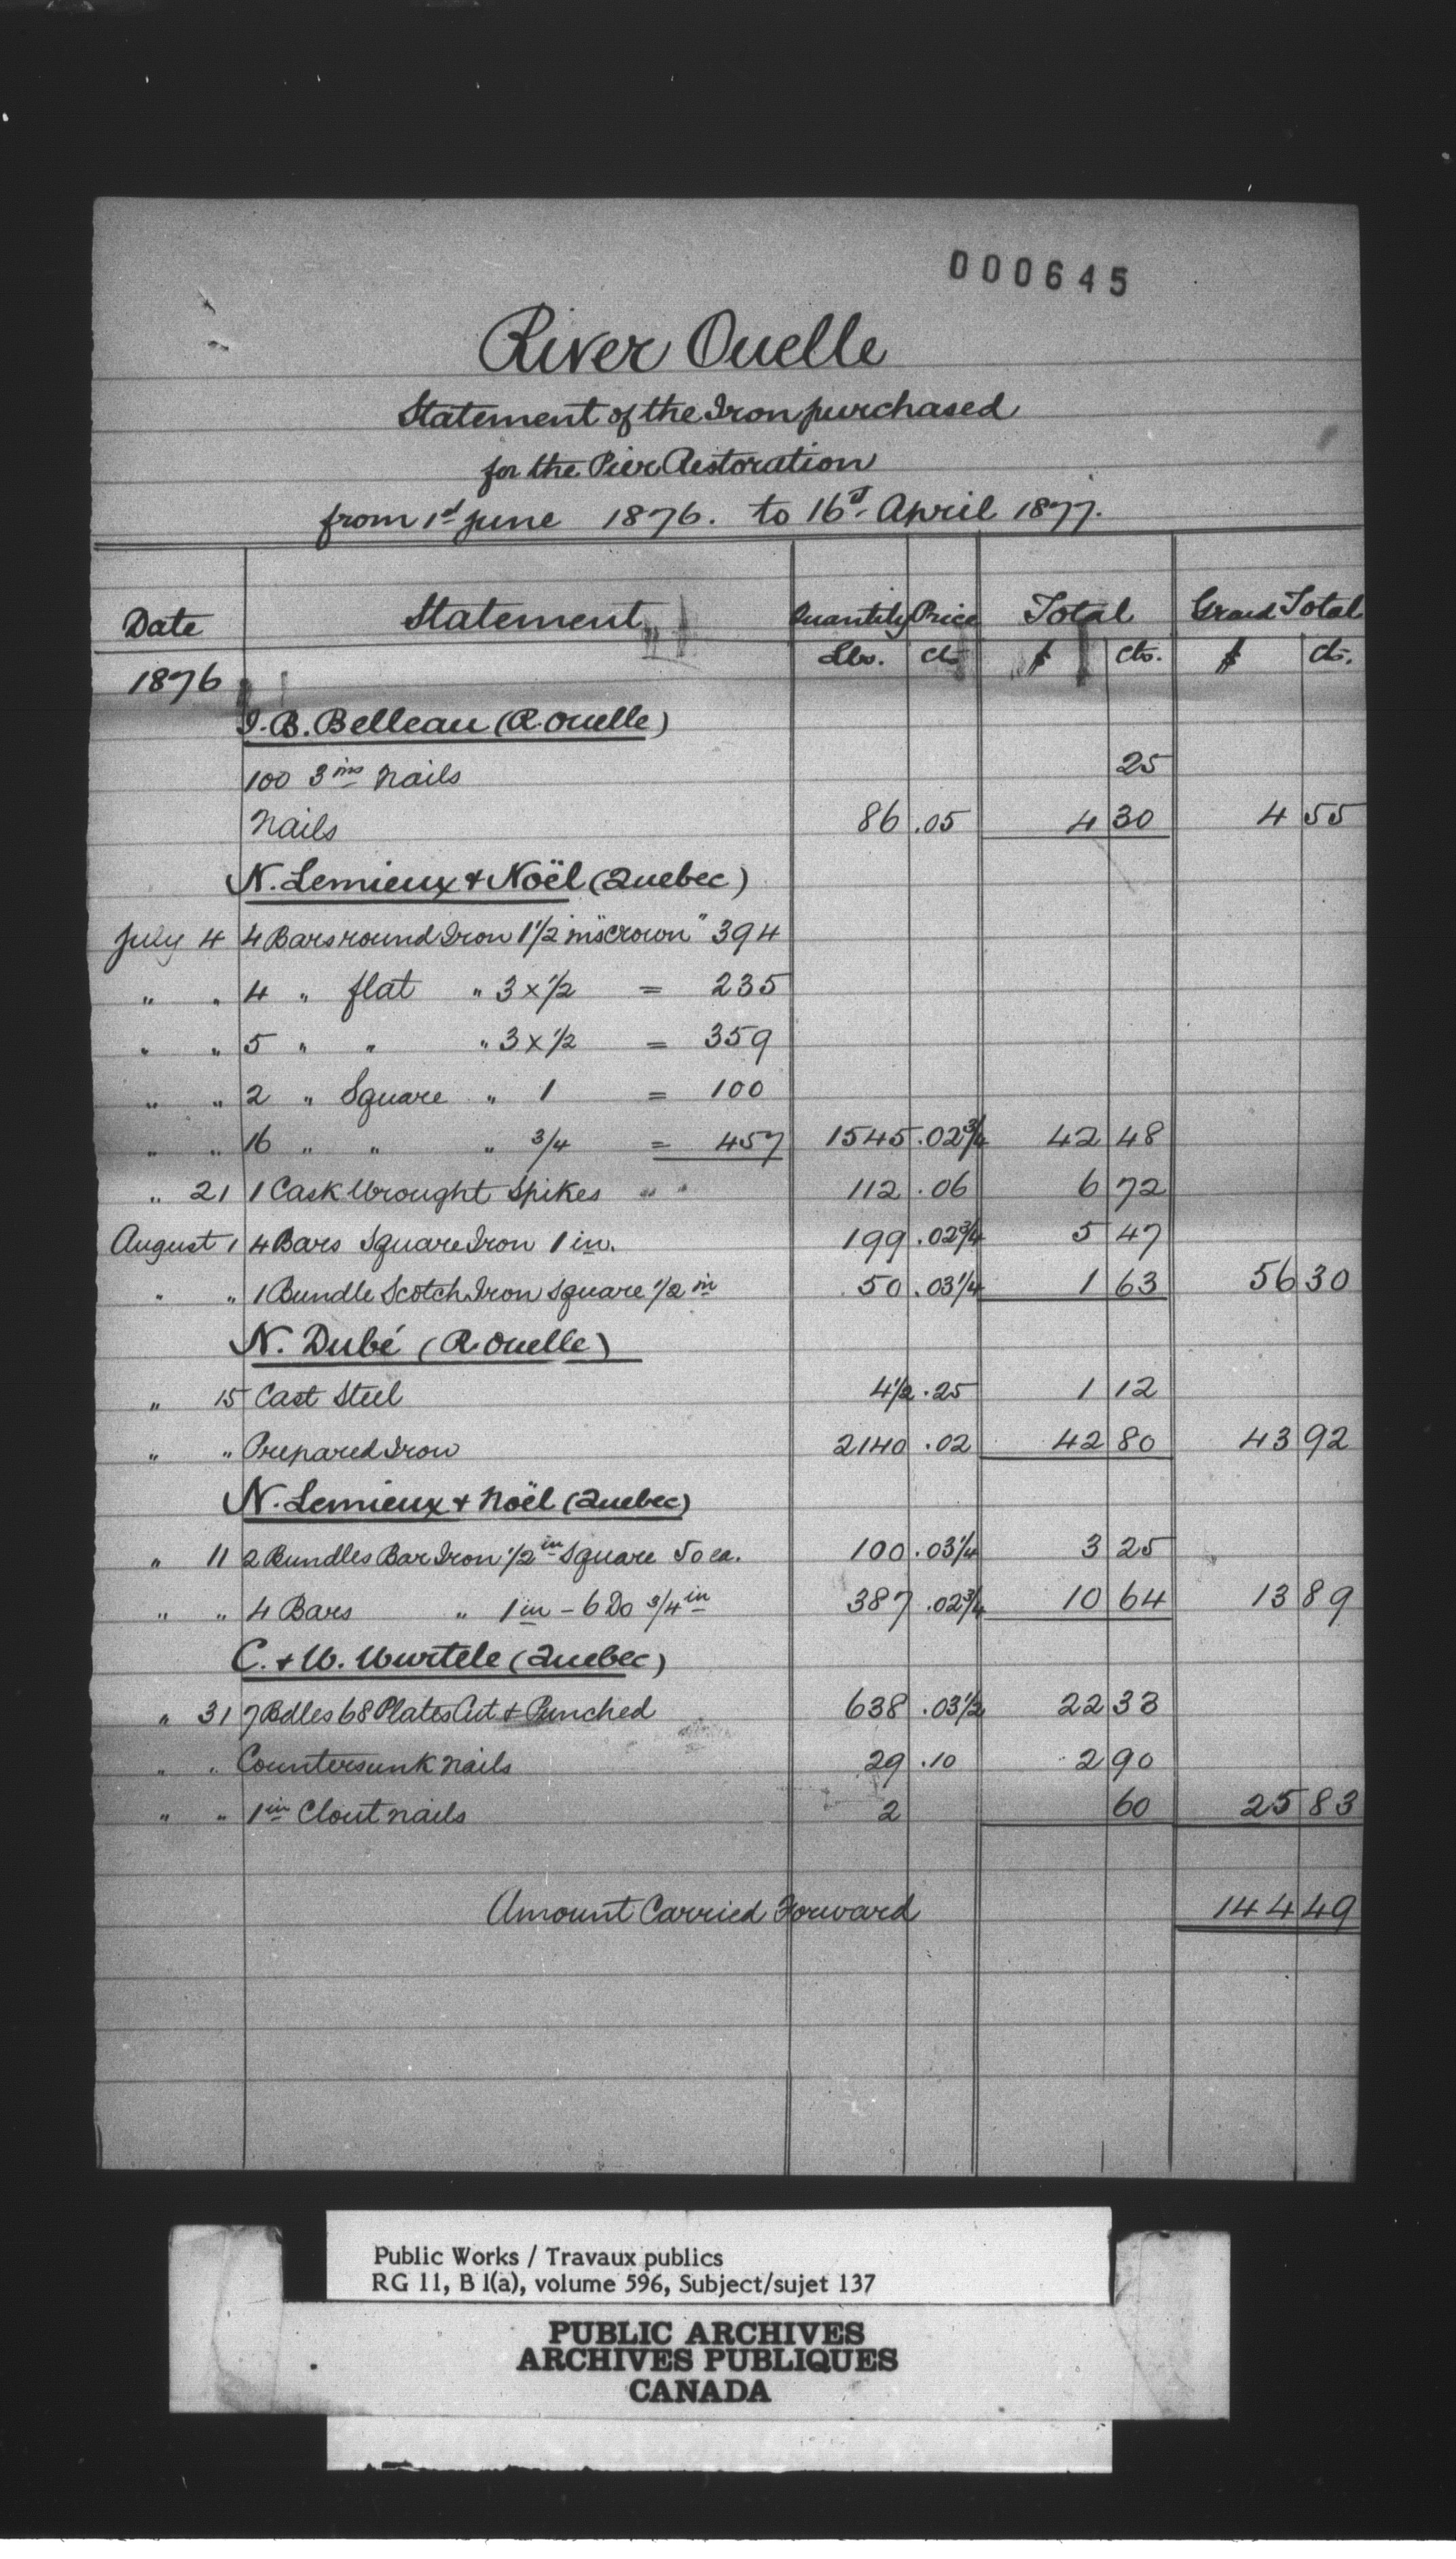 000645
River Ouelle
Statement of the Iron purchased
for the Pier Restoration
from 1st June 1876. to 16th April 1877.
Date Statement Quantity Price Total Grand Total
Lbs. cts $ cts. $ cts.
1876
J. B. Belleau (R. Ouelle)
100 3 ins Nails 25
Nails 86 .05 4 30 4 55
N. Lemieux & Noël (Quebec)
July 4 4 Bars round Iron 1 1/2 in "Crown" 394
" " 4 " flat " 3 x 1/2 = 235
" " 5 " " " 3 x 1/2 = 359
" " 2 " Square " 1 = 100
" " 16 " " " 3/4 = 457 1545 .02 3/4 42 48
" 21 1 Cask Wrought Spikes " " 112 .06 6 72
August 1 4 Bars Square Iron 1 in. 199 .02 3/4 5 47
" " 1 Bundle Scotch Iron Square 1/2 in 50 .03 1/4 1 63 56 30
N. Dubé (R. Ouelle)
" 15 Cast Steel 4 1/2 .25 1 12
" " Prepared Iron 2140 .02 42 80 43 92
N. Lemieux & Noël (Quebec)
" 11 2 Bundles Bar Iron 1/2 in Square 50 ea. 100 .03 1/4 3 25
" " 4 Bars " 1 in - 6 Do 3/4 in 387 .02 3/4 10 64 13 89
C. & W. Wurtele (Quebec)
" 31 7 Bdles 68 Plates Cut & Punched 638 .03 1/2 22 33
" " Countersunk nails 29 .10 2 90
" " 1 in Clout nails 2 60 25 83
Amount Carried Forward 144 49
Public Works / Travaux publics
RG 11, B 1(a), volume 596, Subject/sujet 137
PUBLIC ARCHIVES
ARCHIVES PUBLIQUES
CANADA